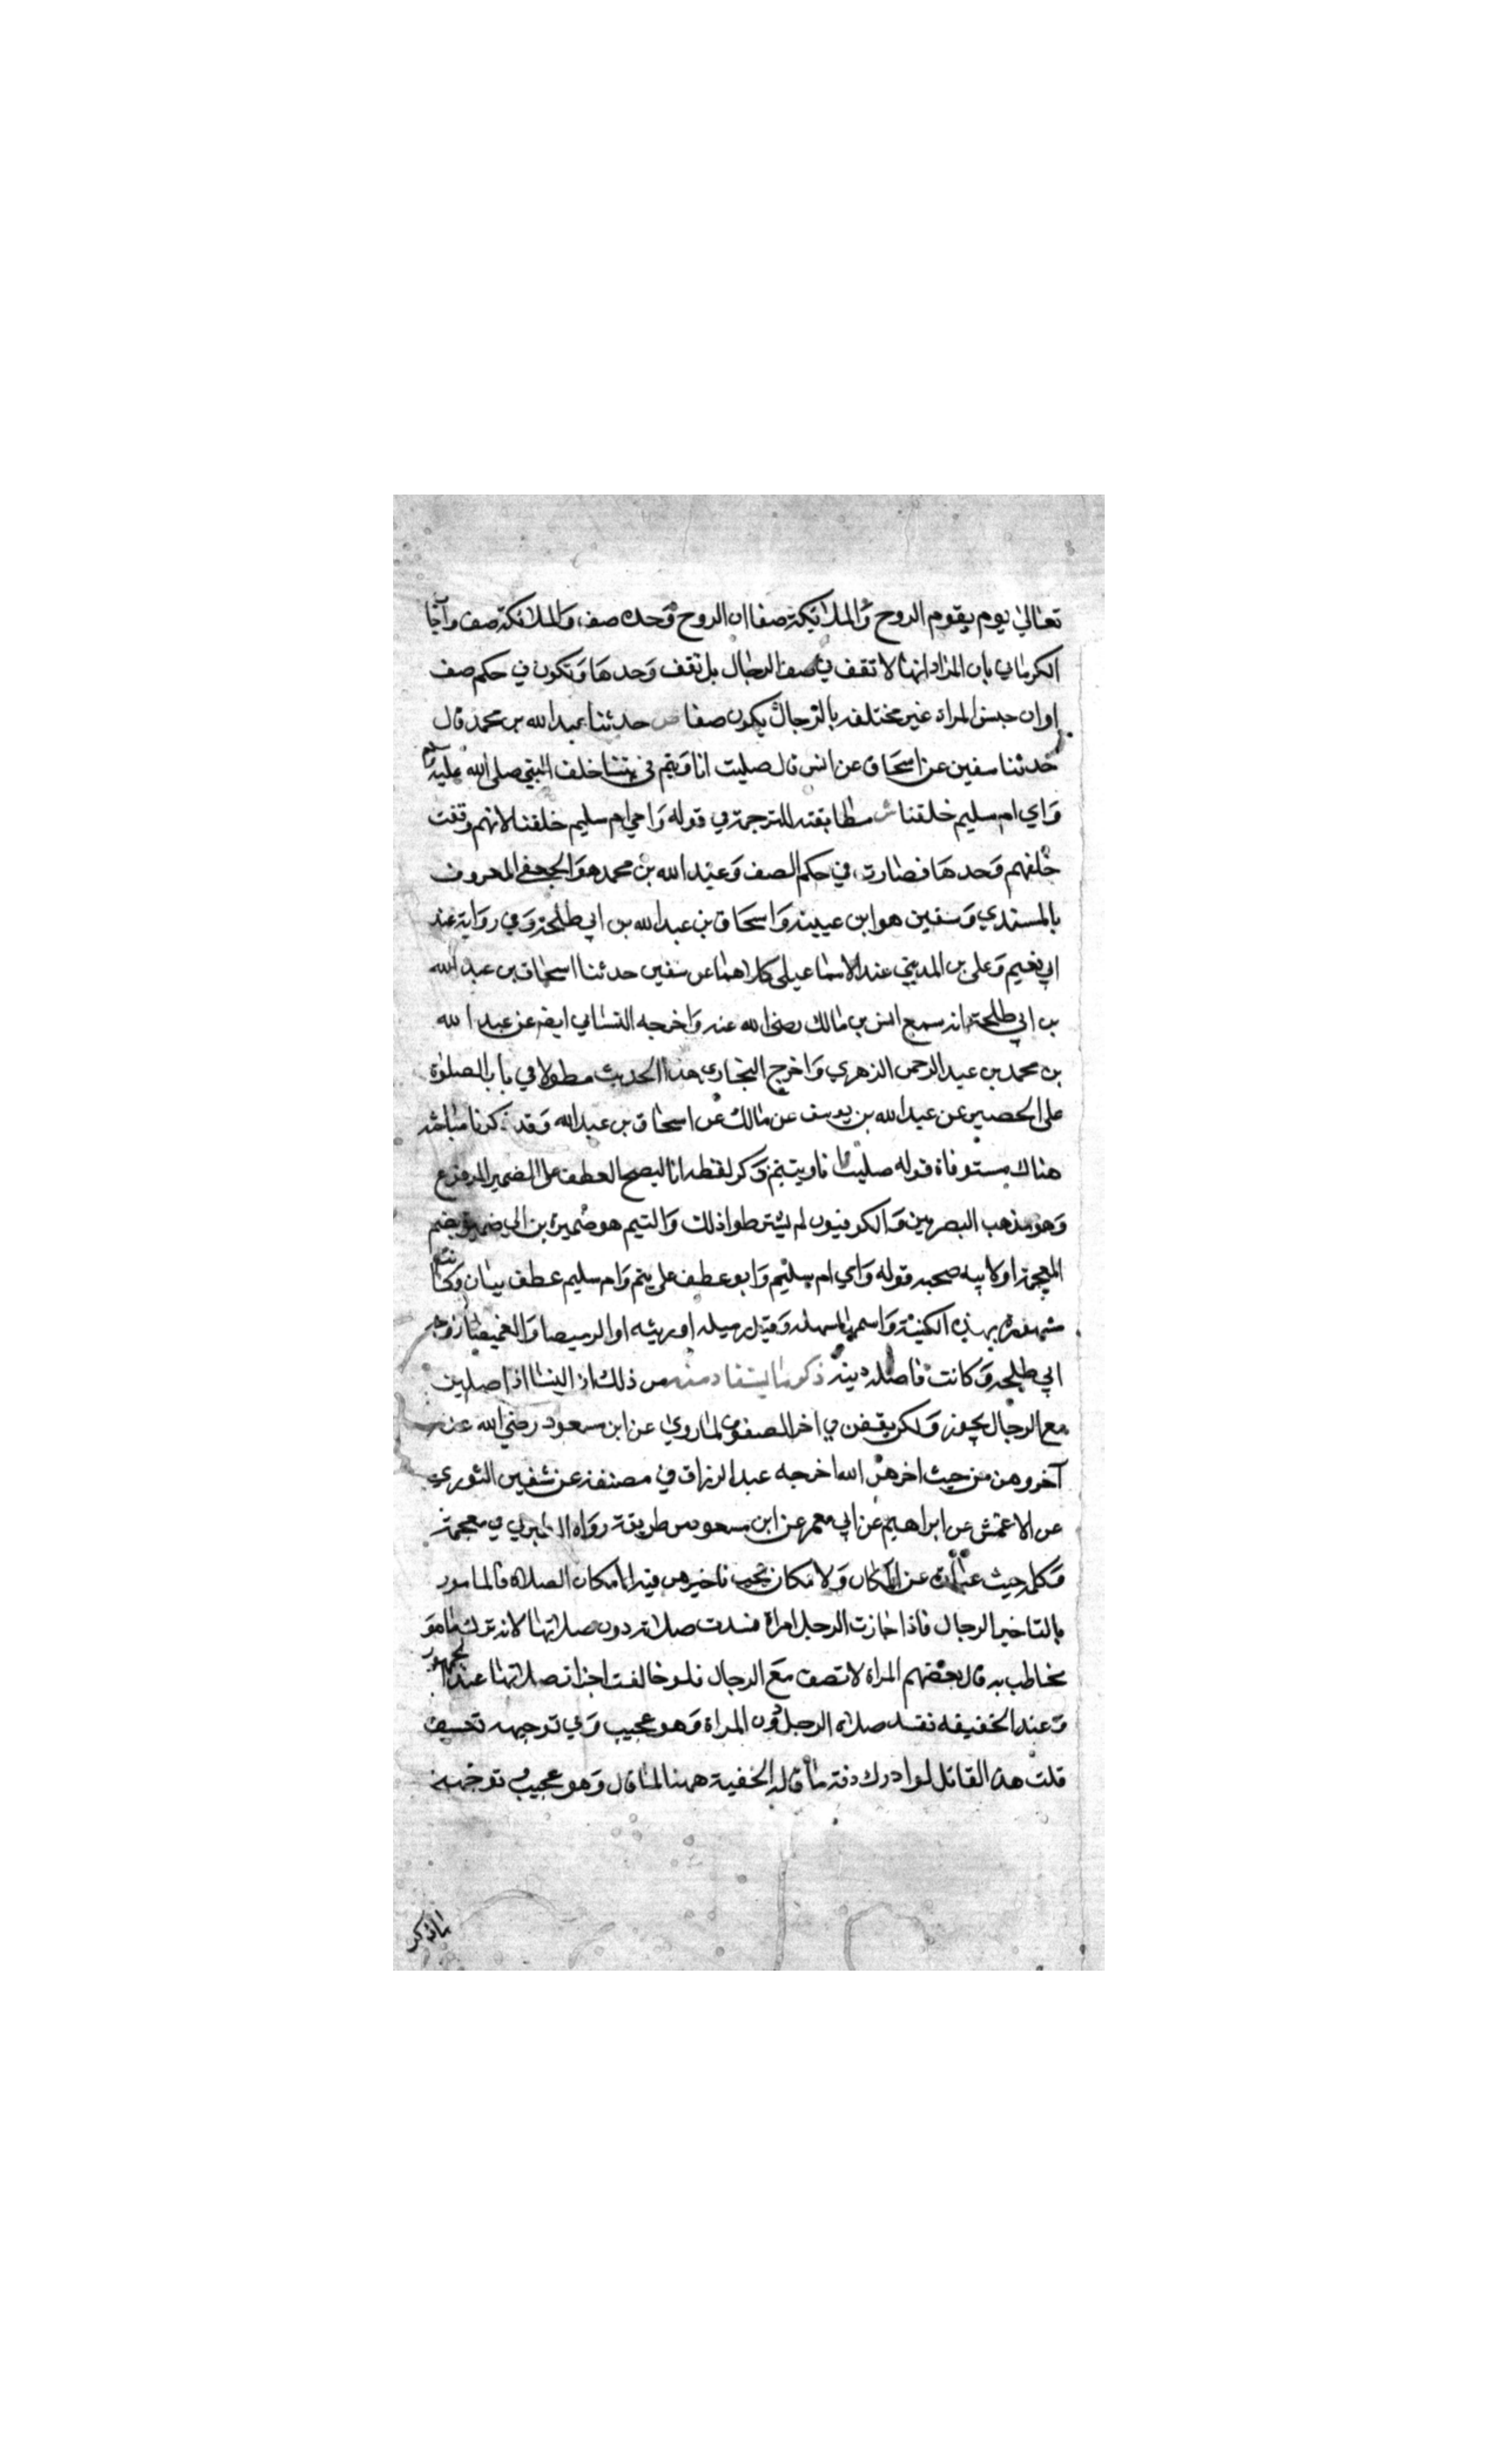 تعالي يوم يقوم الروح والملائكة صفا ان الروح وحده صف والملائكة صف واجا
الكرماني بان المراد انها لا تقف في صف الرجال بل تقف وحدها وتكون في حكم صف
او ان جنس المراة غير مختلف بالرجال يكون صفا ص حدثنا عبد الله بن محمد قال
حدثنا سفين عن اسحاق عن انس قال صليت انا ويتيم في بيتنا خلف النبي صلى الله عليه وسلم
وامي ام سليم خلفنا ش مطابقته للترجمة في قوله وامي ام سليم خلفنا لانهم وقفت
خلفهم وحدها فصارت في حكم الصف وعبد الله بن محمد هو الجعفي المعروف
بالمسندي وسفين هو ابن عيينه واسحاق بن عبد الله بن ابي طلحة وفي رواية عند
ابي نعيم وعلى بن المديني عند الاسماعيلى كلاهما عن سفين حدثنا اسحاق بن عبد الله
بن ابي طلحة انه سمع انس بن مالك رضى الله عنه واخرجه النسائي ايضا عن عبد الله
بن محمد بن عبد الرحمن الزهري واخرج البخارى هذا الحديث مطولا في باب الصلوة
على الحصير عن عبد الله بن يوسف عن مالك عن اسحاق بن عبد الله وقد ذكرنا مباحثه
هناك مستوفاة قوله صليت انا ويتيم ذكر لفظه انا ليصح العطف على الضمير المرفوع
وهو مذهب البصريين والكوفيون لم يشترطوا ذلك واليتيم هو ضميرة بن ابي ضميرة بضم
المعجمة اولابيه صحبه قوله وامي ام سليم وابو عطف على يتم وام سليم عطف بيان وكانت
مشهورة بهذه الكنية واسمها سهلة وقيل رميله او رميثه او الرميصا والغميصا زوجة
ابي طلحه وكانت فاضله دينه ذكر ما يستفاد منه من ذلك ان النسا اذا صلين
مع الرجال يجوز ولكن يقفن في اخر الصفوف لما روي عن ابن مسعود رضي الله عنه
آخروهن من حيث اخرهن الله اخرجه عبد الرزاق في مصنفه عن سفين الثوري
عن الاعمش عن ابراهيم عن ابي معمر عن ابن مسعود من طريقة رواه الطبراني في معجمه
وكل حيث عبارة عن المكان ولا مكان يجب تاخيرهن فيه الا مكان الصلاة فالمامور
بالتاخير الرجال فاذا حازت الرجل امراة فسدت صلاته دون صلاتها لانه ترك ما هو
مخاطب به قال بعضهم المراة لا تصف مع الرجال فلو خالفت اجزات صلاتها عند الجمهور
وعند الحنفيه تفسد صلاة الرجل دون المراة وهو عجيب وفي توجيهه تعسف
قلت هذا القائل لو ادرك دقة ما قاله الحنفية ههنا لما قال وهو عجيب توجيهه
ما ذكر